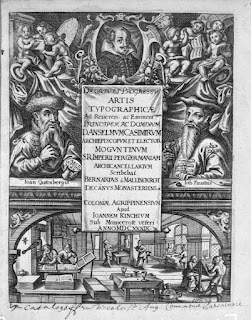 DE ORTU ET PROGRESSU
ARTIS
TYPOGRAPHICÆ
Ad Reveren: ac Eminent:
PRINCIPEM AC DOMINUM
D. ANSELMUM CASIMIRUM
ARCHIEPISCOPUM ET ELECTOR
MOGUNTINUM
S R IMPERII PER GERMANIAM
ARCHICANCELLARIUM
Scribebat
BERNARDUS a MALLINCKROT
DECANUS MONASTERIENS:
COLONIÆ AGRIPPINENSIUM,
Apud
IOANNEM KINCHIUM
Sub Monocerote veteri
ANNO MDC XXXIX
Ioan Gutenbergius
Ioh Faustus
Catalogo